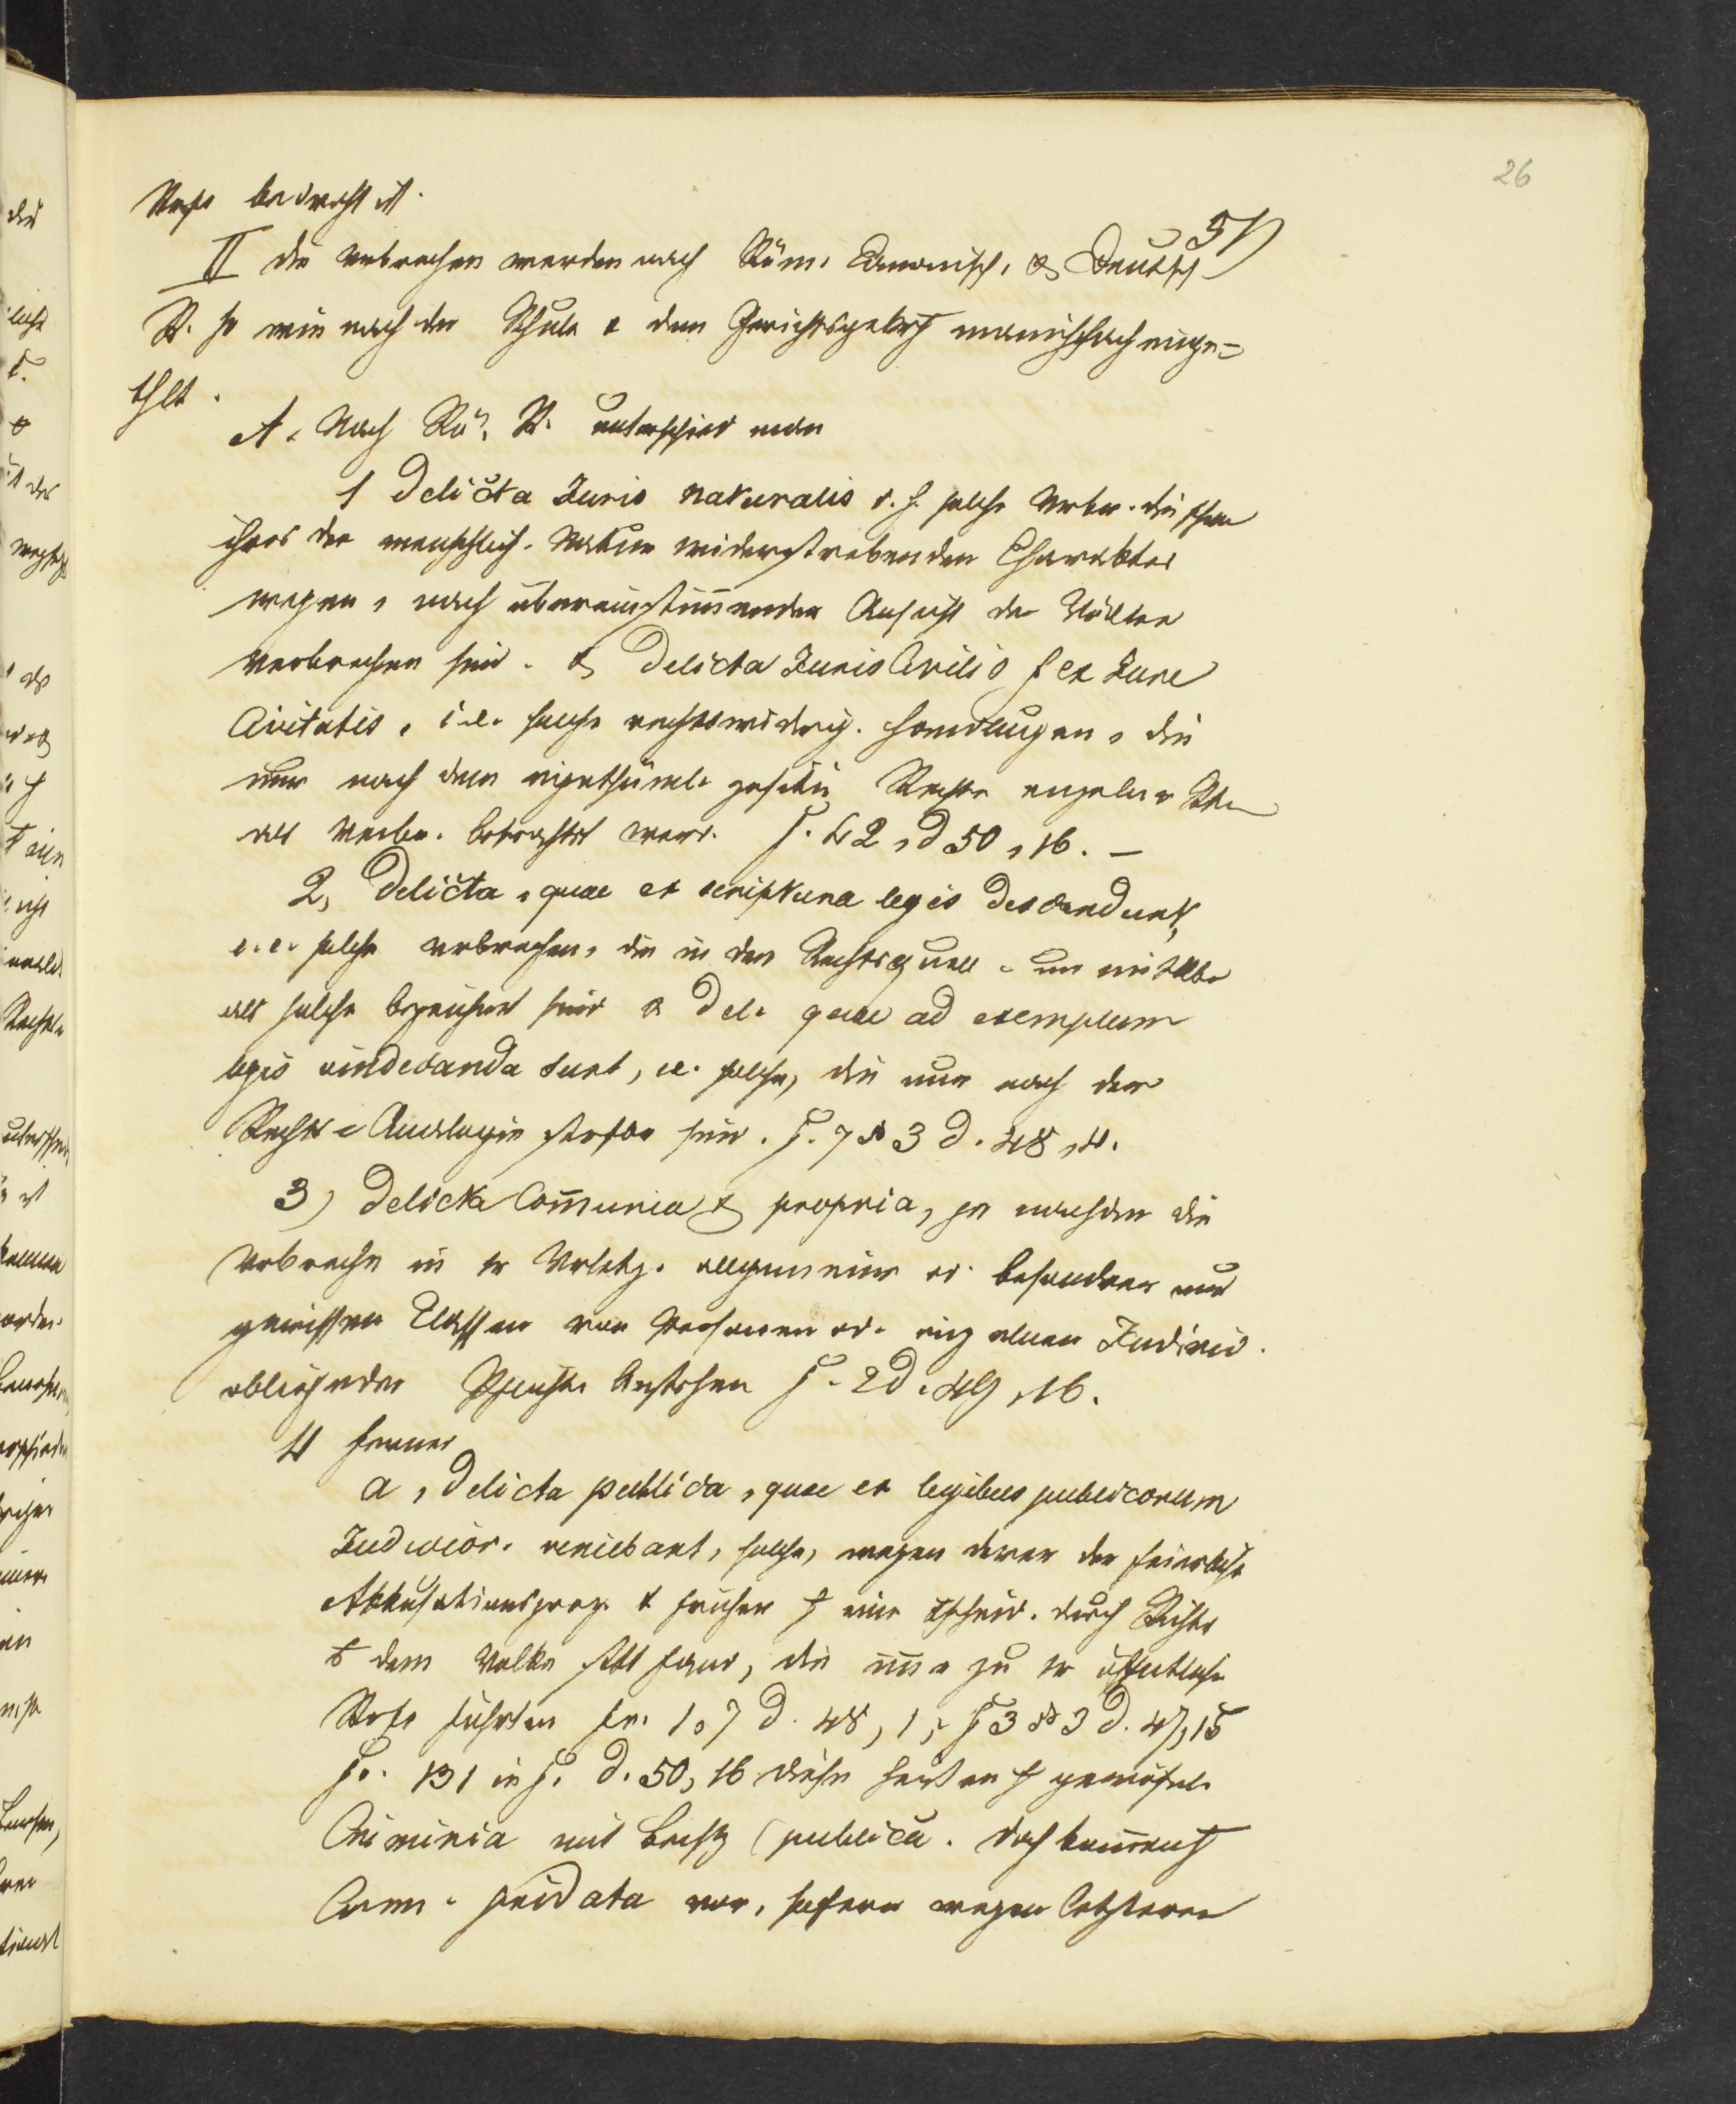 26
51)
Strafe bedroht ist.
II die Verbrechen werden nach Röm. Canonisch. & Deutsch
R. so wie nach der Schule & dem Gerichtsgebrch mannichfach einge=
thlt.
A. Nach Rö. R. unterschied man
1 Delicta Juris naturalis d. h. solche Verbr. die schon
ihres der menschlich. Natur widerstrebenden Charakters
wegen, nach übereinstimmender Ansicht der Völker
Verbrechen sind. & Delicta Juris Civilis s ex Jure
Civitatis, i. e. solche rechtswidrig. Handlungen, die
nur nach dem eigenthüml. Rechte einzelner
als Verbr. betrachtet werd. f. 42, D 50, 16. —
2, Delicta, quae ex scriptura legis descendunt,
i. e. solche Verbrechen, die in den Rechtsquell. unmittelbr
als solche bezeichnet sind & Del. quae ad exemplum
legis vindicanda sunt, i.e. solche, die nur nach der
Rechts=Analogie strafbr sind. f. 7 § 3 D. 48, 4.
3) Delicta Communia & propria, je nachdem die
Verbrechn in der Verletzg. allgemeiner od. besondrer nur
gewissen Classen von Personen od. einzelnen Individ.
obliegender Pflicht. bestehen f. 2 D. 49, 16.
4 ferner
a, Delicta publica, quae ex legibus publicorum
Judicior. veniebant, solche, wegen derer der feierliche
Akkusationsproz. & früher eine durch Richter
dem Volke statt fand, die immer zu öffentlicher
Strafe führten fr. 1, 7 D. 48, 1, f 3 § 3 D. 47, 15
fr. 131 in f. D. 50, 16 diese heissen gewöhnl.
Criminia mit Beisz (publica. doch kommen
Crim. privata vor, sofern wegen letzterer